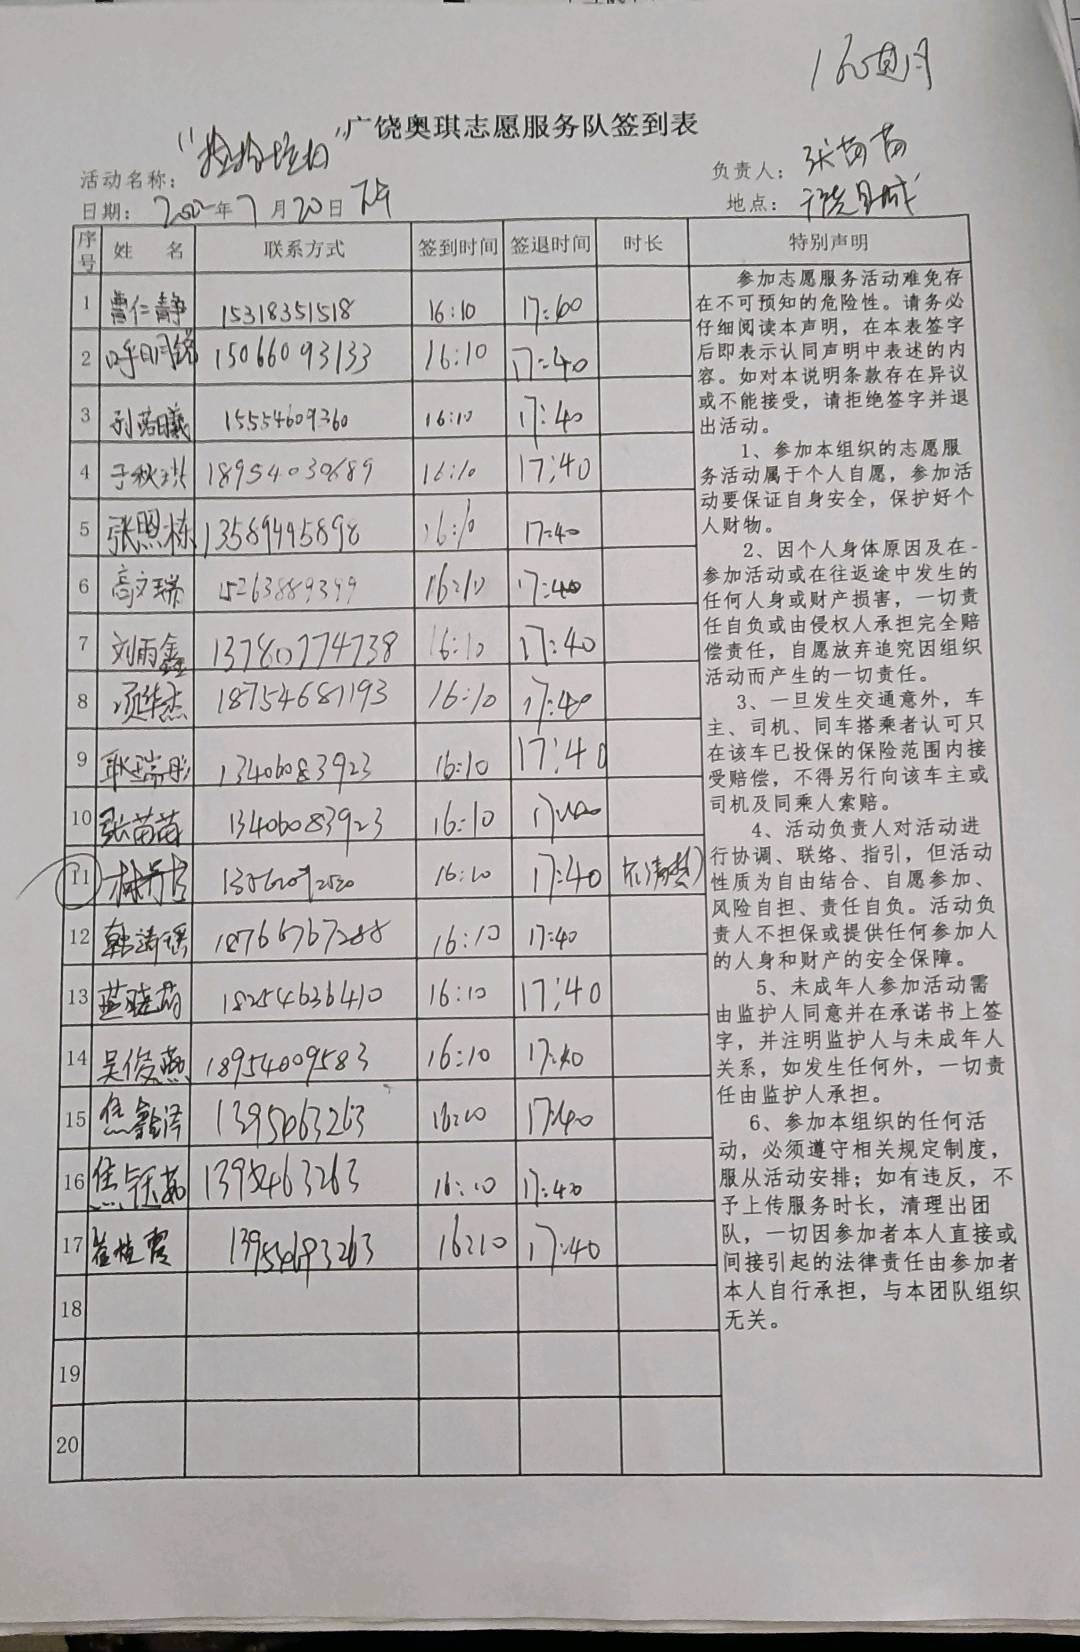 广饶奥琪志愿服务队签到表
活动名称： "捡拾垃圾"
负责人： 张苗苗
日期： 2022年7月20日 下午
地点： 广饶县城
序号 姓 名 联系方式 签到时间 签退时间 时长 特别声明
1 曹仁静 15318351518 16:10
2 15066093133 16:10 17:40
3 15554609360 16:10 17:40
4 于秋琪 18954030689 16:10 17:40
5 张照栋 13589945898 16:10 17:40
6 高文瑞 15263889399 16:10 17:40
7 刘雨鑫 13780774738 16:10 17:40
8 项华杰 18754681193 16:10 17:40
9 耿瑞彤 13406083923 16:10 17:40
10 张苗苗 13406083923 16:10 17:40
11 16:10 17:40
12 韩诗瑶 18766767288 16:10 17:40
13 蓝晓菊 18254636410 16:10 17:40
14 吴俊燕 18954009583 16:10 17:40
15 焦鑫泽 1395463263 16:10 17:40
16 焦钰茹 1395463263 16:10 17:40
17 崔桂霞 16:10 17:40
18
19
20
参加志愿服务活动难免存
在不可预知的危险性。请务必
仔细阅读本声明，在本表签字
后即表示认同声明中表述的内
容。如对本说明条款存在异议
或不能接受，请拒绝签字并退
出活动。
1、参加本组织的志愿服
务活动属于个人自愿，参加活
动要保证自身安全，保护好个
人财物。
2、因个人身体原因及在-
参加活动或在往返途中发生的
任何人身或财产损害，一切责
任自负或由侵权人承担完全赔
偿责任，自愿放弃追究因组织
活动而产生的一切责任。
3、一旦发生交通意外，车
主、司机、同车搭乘者认可只
在该车已投保的保险范围内接
受赔偿，不得另行向该车主或
司机及同乘人索赔。
4、活动负责人对活动进
行协调、联络、指引，但活动
性质为自由结合、自愿参加、
风险自担、责任自负。活动负
责人不担保或提供任何参加人
的人身和财产的安全保障。
5、未成年人参加活动需
由监护人同意并在承诺书上签
字，并注明监护人与未成年人
关系，如发生任何外，一切责
任由监护人承担。
6、参加本组织的任何活
动，必须遵守相关规定制度，
服从活动安排；如有违反，不
予上传服务时长，清理出团
队，一切因参加者本人直接或
间接引起的法律责任由参加者
本人自行承担，与本团队组织
无关。